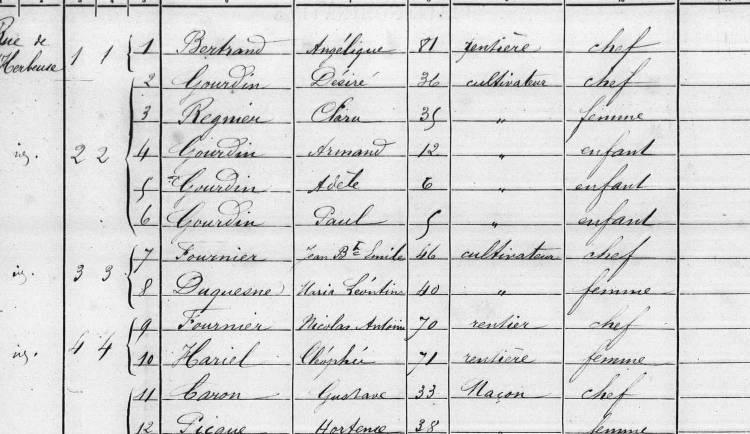 Rue de 1 1 1 Bertrand Angélique 81 rentière chef
Herbeuse
2 Gourdin Désiré 36 cultivateur chef
3 Regnier Clara 35 " femme
ig. 2 2 4 Gourdin Armand 12 " enfant
5 Gourdin Adèle 6 " enfant
6 Gourdin Paul 5 " enfant
7 Fournier Jean Bte Emile 46 cultivateur chef
ig. 3 3
8 Duquesne Maria Léontine 40 " femme
9 Fournier Nicolas Antoine 70 rentier chef
ig. 4 4
10 Hariel Cléophée 71 rentière femme
11 Caron Gustave 33 Maçon chef
12 Picque Hortence 38 femme